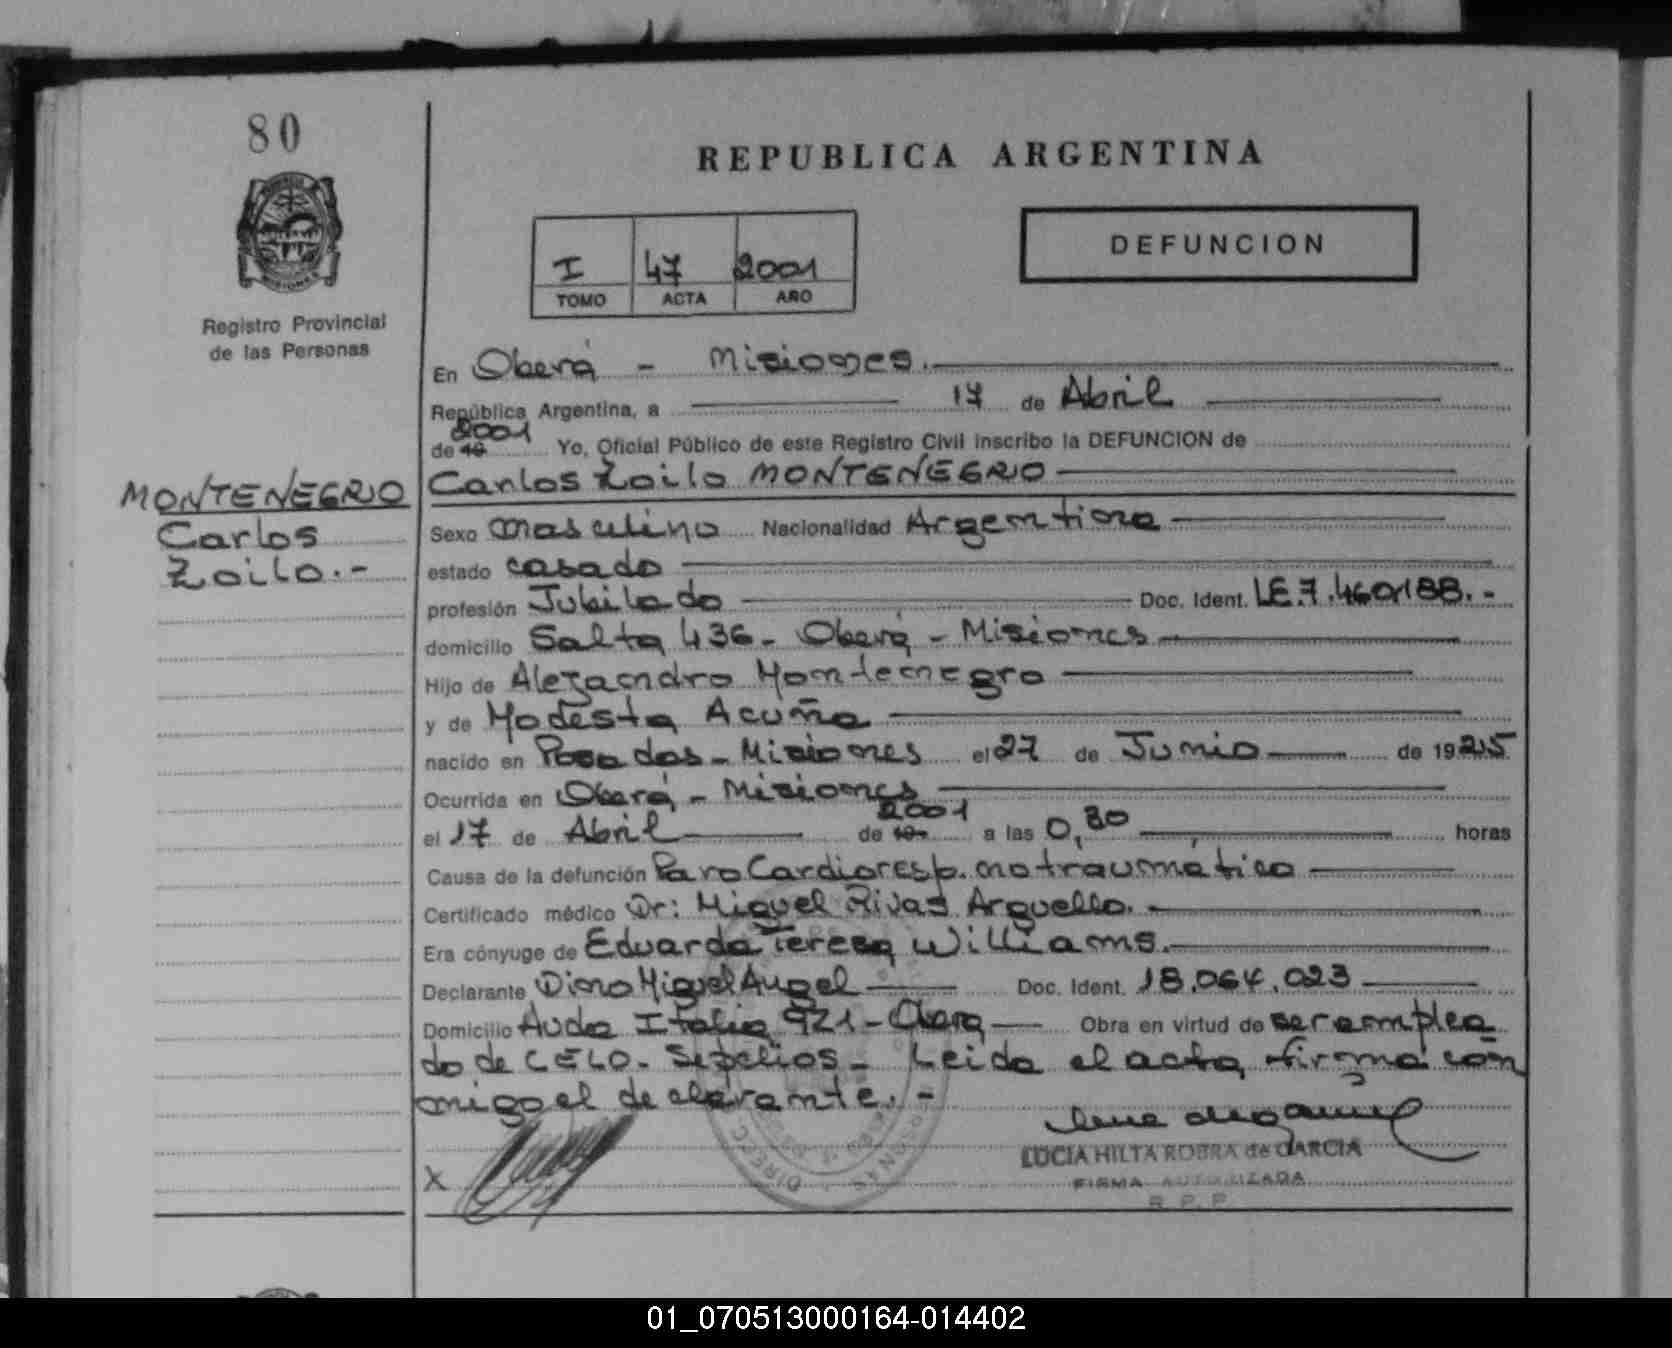 80
REPUBLICA ARGENTINA
DEFUNCION
I 47 2001
TOMO ACTA AÑO
MISIONES
Registro Provincial
de las Personas
En Oberá - Misiones.
República Argentina, a 17 de Abril
2001
de 19 Yo, Oficial Público de este Registro Civil inscribo la DEFUNCION de
MONTENEGRO
Carlos
Zoilo.-
Carlos Zoilo MONTENEGRO
Sexo masculino Nacionalidad Argentina
estado casado
profesión Jubilado Doc. Ident. LE.7.460.188.-
domicilio Salta 436- Oberá - Misiones
Hijo de Alejandro Montenegro
y de Modesta Acuña
nacido en Posadas - Misiones el 27 de Junio de 1925
Ocurrida en Oberá - Misiones
2001
el 17 de Abril de 19 a las 0,30 horas
Causa de la defunción Paro Cardioresp. no traumático
Certificado médico Dr: Miguel Rivas Arguello.
Era cónyuge de Eduarda Teresa Williams.
Declarante Dino Miguel Angel Doc. Ident. 18.064.023
Domicilio Avda Italia 921 - Oberá Obra en virtud de ser emplea
do de CELO. Sepelios - Leida el acta, firma con
migo el declarante. -
X
LUCIA HILTA ROBRA de GARCIA
FIRMA AUTORIZADA
R. P. P.
01_070513000164-014402